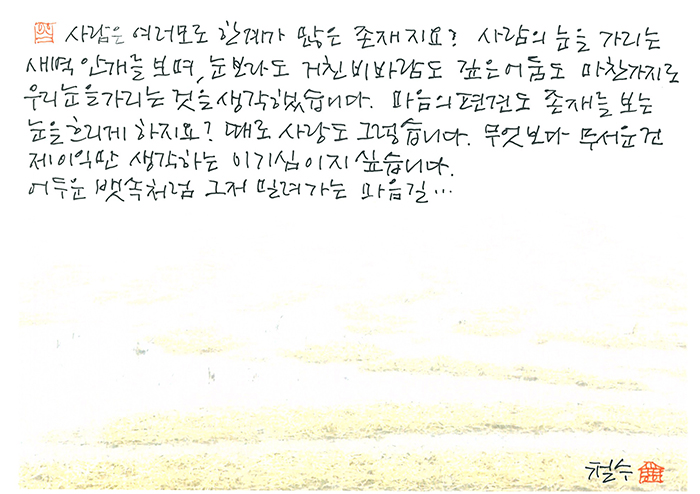 사람은 여러모로 한계가 많은 존재지요? 사람의 눈을 가리는
새벽 안개를 보며, 눈보라도 거친 비바람도 깊은 어둠도 마찬가지로
우리 눈을 가리는 것을 생각했습니다. 마음의 편견도 존재를 보는
눈을 흐리게 하지요? 때로 사랑도 그렇습니다. 무엇보다 무서운 건
제 이익만 생각하는 이기심이지 싶습니다.
어두운 뱃속처럼 그저 밀려가는 마음길...
철수